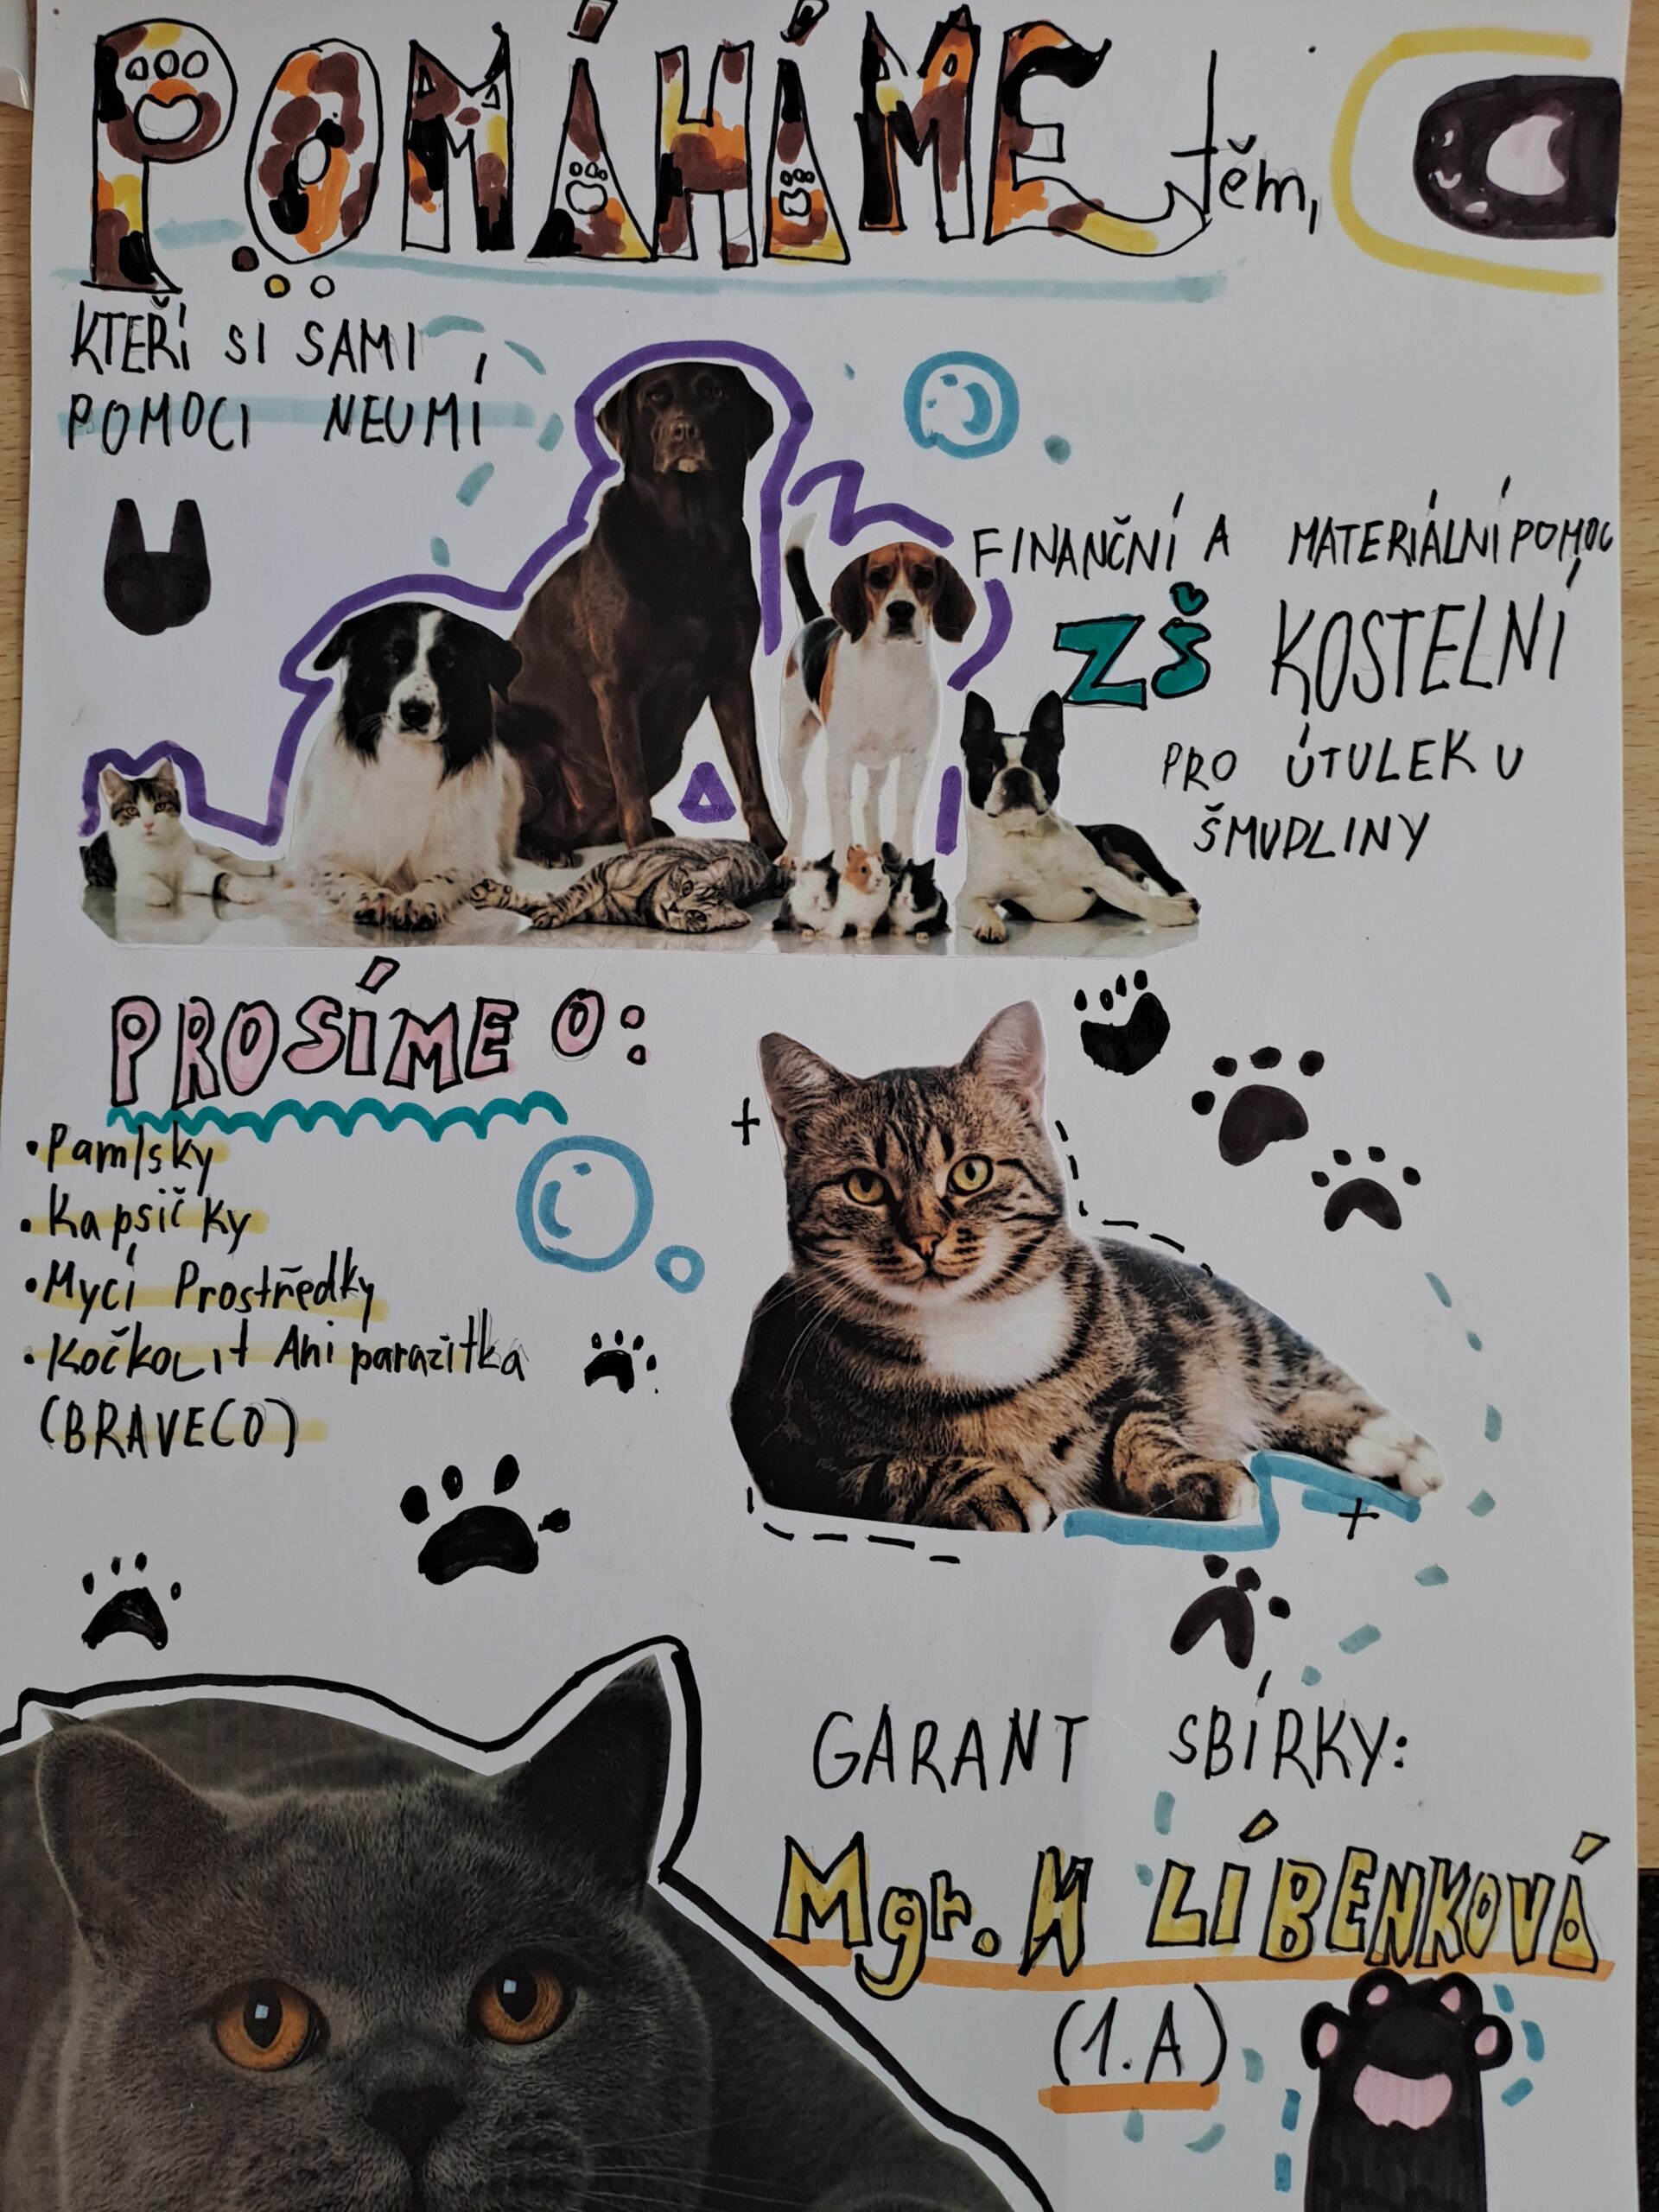 POMÁHÁME těm,
KTEŘÍ SI SAMI
POMOCI NEUMÍ
FINANČNÍ A MATERIÁLNÍ POMOC
ZŠ KOSTELNÍ
PRO ÚTULEK U
ŠMUDLINY
PROSÍME O:
• Pamlsky
• Kapsičky
• Mycí Prostředky
• Kočkolit Ani parazitka
(BRAVECO)
GARANT SBÍRKY:
Mgr. M LÍBENKOVÁ
(1.A)